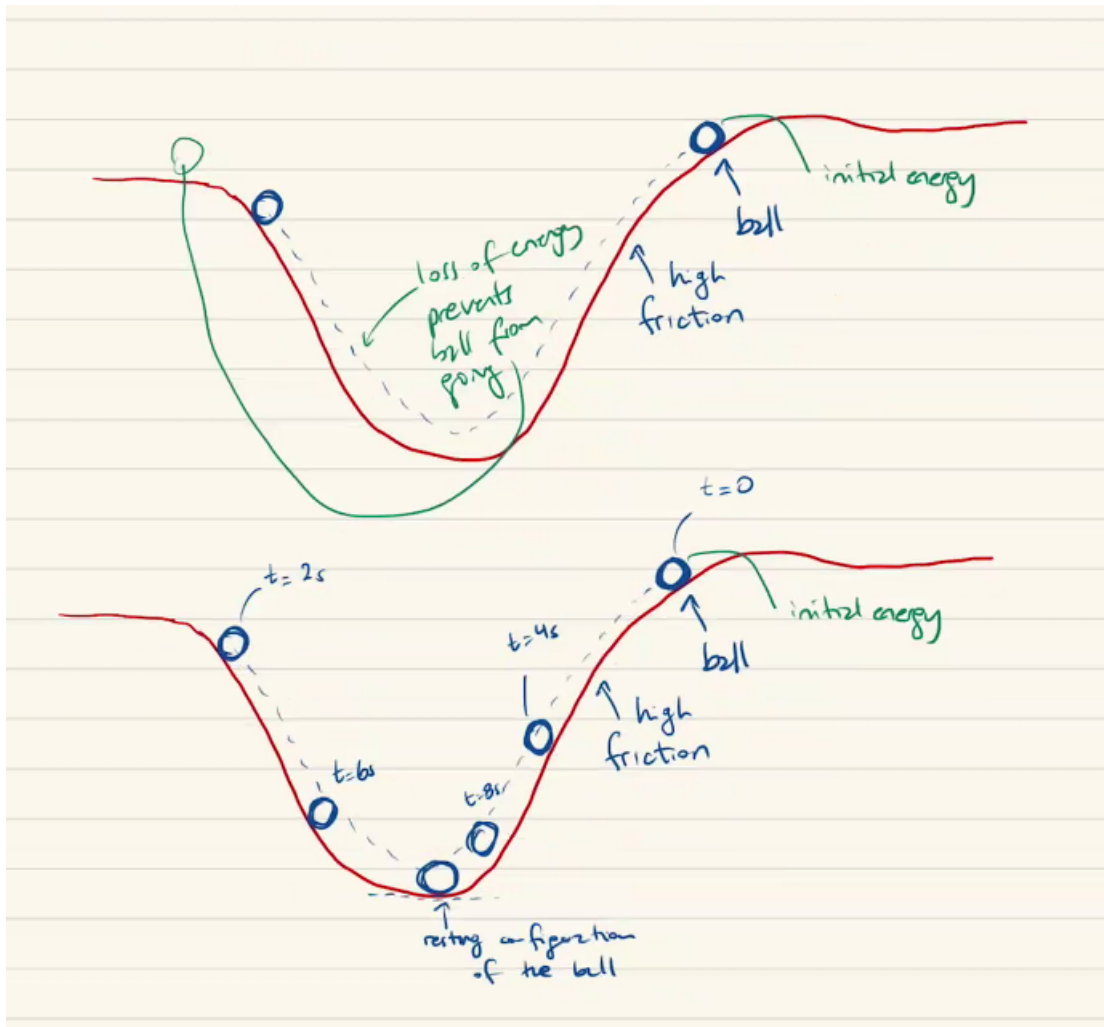 initial energy
ball
high
friction
loss of energy
prevents
ball from
going
t=0
t=2s
initial energy
t=4s
ball
high
friction
t=6s
t=8s
resting configuration
of the ball